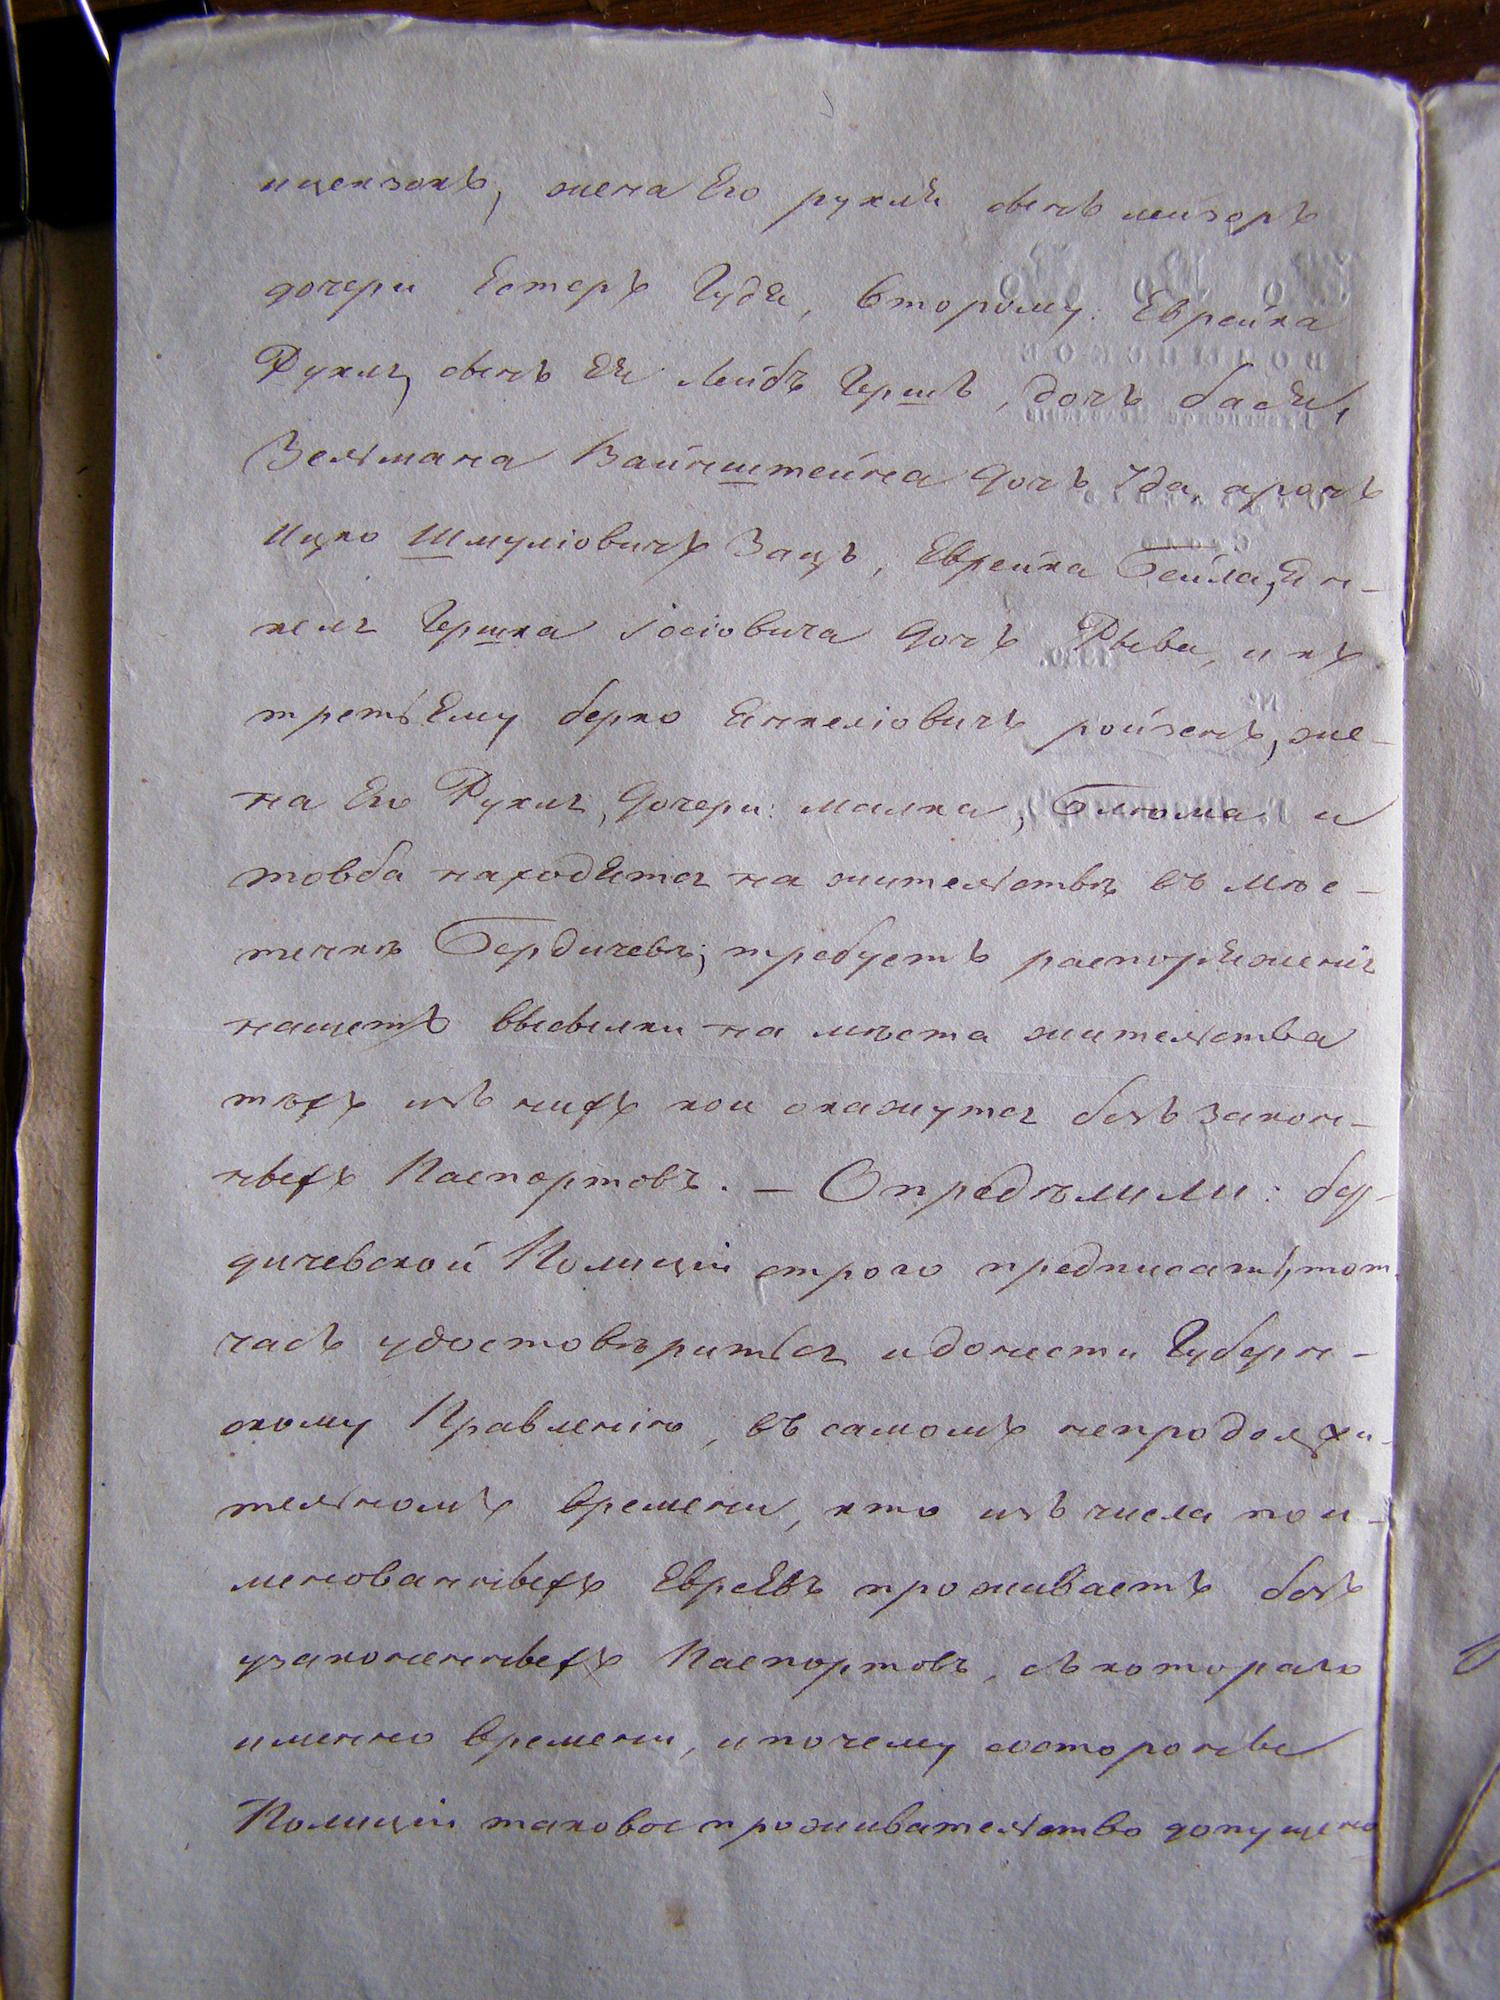 ицензонъ, жена Его рухля сынъ мизоръ
дочери Естеръ Гудя, второму: Еврейка
Рухля, сынъ Ея Лейбъ Гершъ, дочь бася,
Зельмана Вайнштейна дочь Ида, аронъ
Ицко Шмуліовичъ Зацъ, Еврейка Бейла, Ян-
келя Гершка Іосіовича дочь Рыва, и къ
третьему берко Янкеліовичъ ройзенъ, же-
на Его Рухля, дочери: малка, Блюма и
товба находятся на жительствѣ въ мѣс-
течкѣ Бердичевѣ, требуетъ распоряженія
нащетъ высылки на мѣста жительства
тѣхъ изъ нихъ кои окажутся безъ закон-
ныхъ Паспортовъ. — Опредѣлили: бер-
дичевской Полиціи строго предписать, тот-
часъ удостовѣриться и донести Губерн-
скому Правленію, въ самомъ непродолжи-
тельномъ времени, кто изъ числа пои-
менованныхъ Евреевъ проживаетъ безъ
узаконенныхъ Паспортовъ, съ котораго
именно времени, и почему состороны
Полиціи таковое проживательство допущено